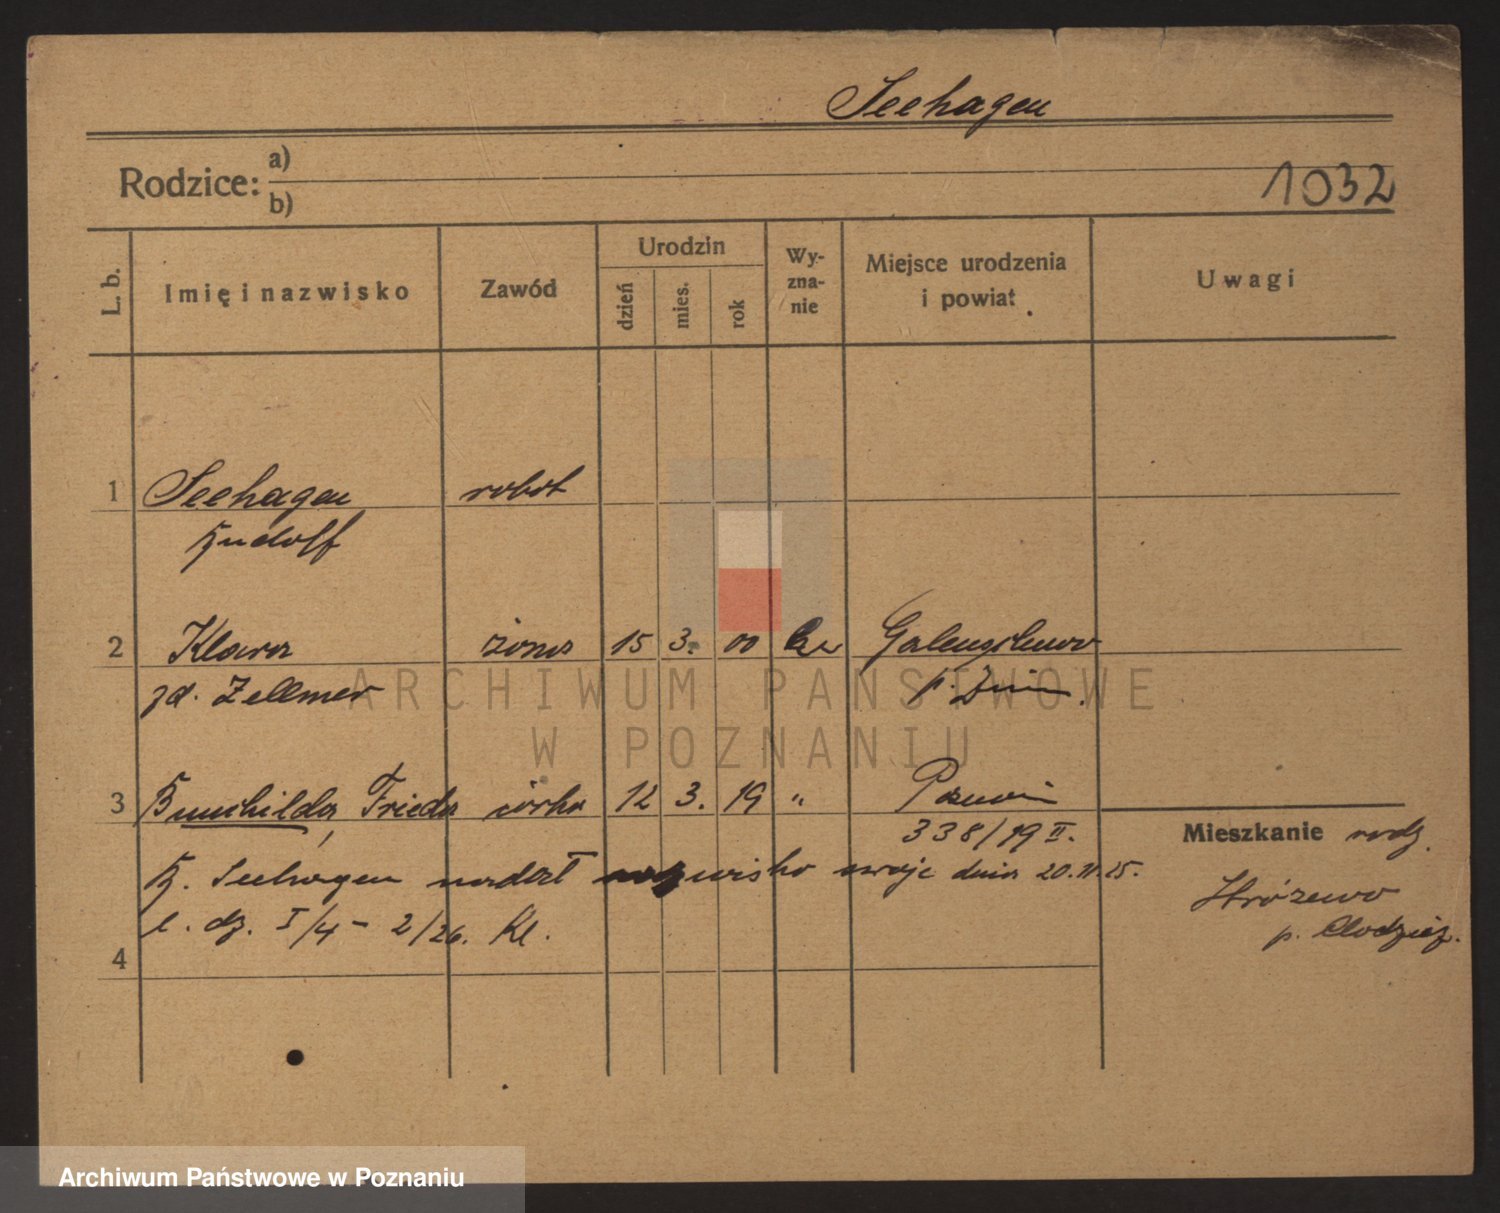 Seehagen
Rodzice: a)
b)
1032
L. b.
Imię i nazwisko
Zawód
Urodzin
dzień
mies.
rok
Wy-
zna-
nie
Miejsce urodzenia
i powiat
Uwagi
1 Seehagen robot
Rudolf
2 Klara żona 15 3. 00
zd. Zellmer
3 Brunhilda, Frieda córka 12 3. 19 "
338/19 II.
Mieszkanie rodz.
R. Seehagen nadał nazwisko swoje dnia 20.11.25.
Strózewo
l. dz. I/4 - 2/26. Kl.
p. Chodzież.
4
ARCHIWUM PAŃSTWOWE
W POZNANIU
Archiwum Państwowe w Poznaniu